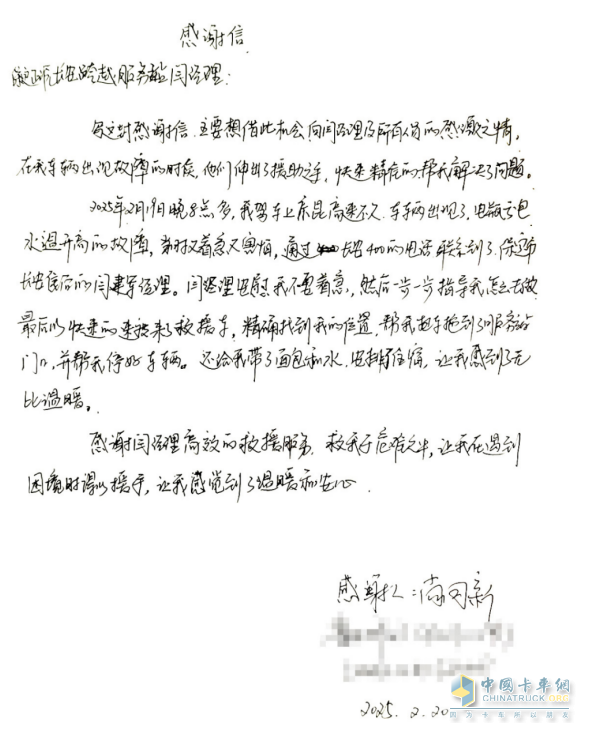 感谢信
保定长安跨越服务站闫经理：
写这封感谢信，主要想借此机会向闫经理及所有人员的感激之情，
在我车辆出现故障的时候，他们伸出了援助之手，快速精准的帮我解决了问题。
2025年2月19日晚8点多，我驾车上京昆高速不久，车辆出现了电瓶亏电
水温升高的故障，当时又着急又害怕，通过长安400的电话联系到了保定
长安售后的闫建军经理。闫经理安慰我不要着急，然后一步一步指导我怎么去做
最后以快速的速度来了救援车，精确找到我的位置，帮我把车拖到了服务站
门口，并帮我停好车辆。还给我带了面包和水，安排好住宿，让我感到了无
比温暖。
感谢闫经理高效的救援服务，救我于危难之中，让我在遇到
困境时得以援手，让我感觉到了温暖和安心。
感谢人：新
2025.2.20
中国卡车网
CHINATRUCK.ORG
因为卡车所以朋友